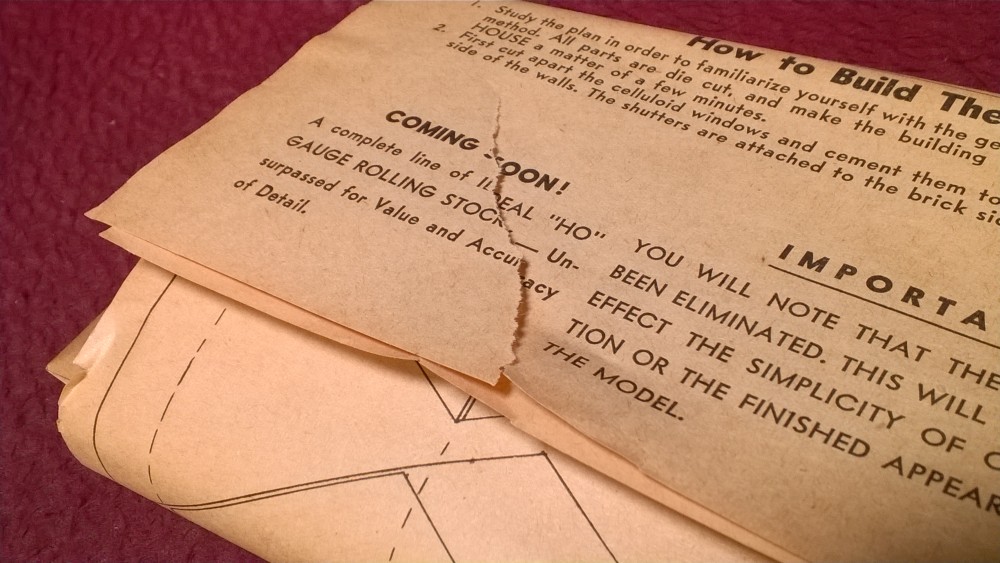 How to Build The
1. Study the plan in order to familiarize yourself with the ge
method. All parts are die cut, and make the building
HOUSE a matter of a few minutes.
2. First cut apart the celluloid windows and cement them to
side of the walls. The shutters are attached to the brick sid
COMING SOON!
A complete line of IDEAL "HO"
GAUGE ROLLING STOCK — Un-
surpassed for Value and Accuracy
of Detail.
IMPORTA
YOU WILL NOTE THAT THE
BEEN ELIMINATED. THIS WILL
EFFECT THE SIMPLICITY OF C
TION OR THE FINISHED APPEAR
THE MODEL.